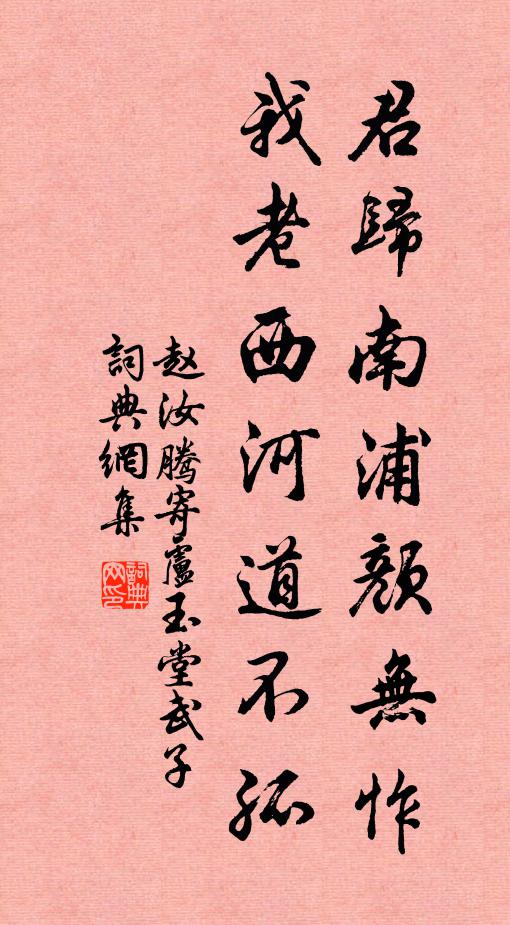 君歸南浦顏無怍
我老西河道不孤
赵汝騰寄盧玉堂武子
詞典網集
詞典网印